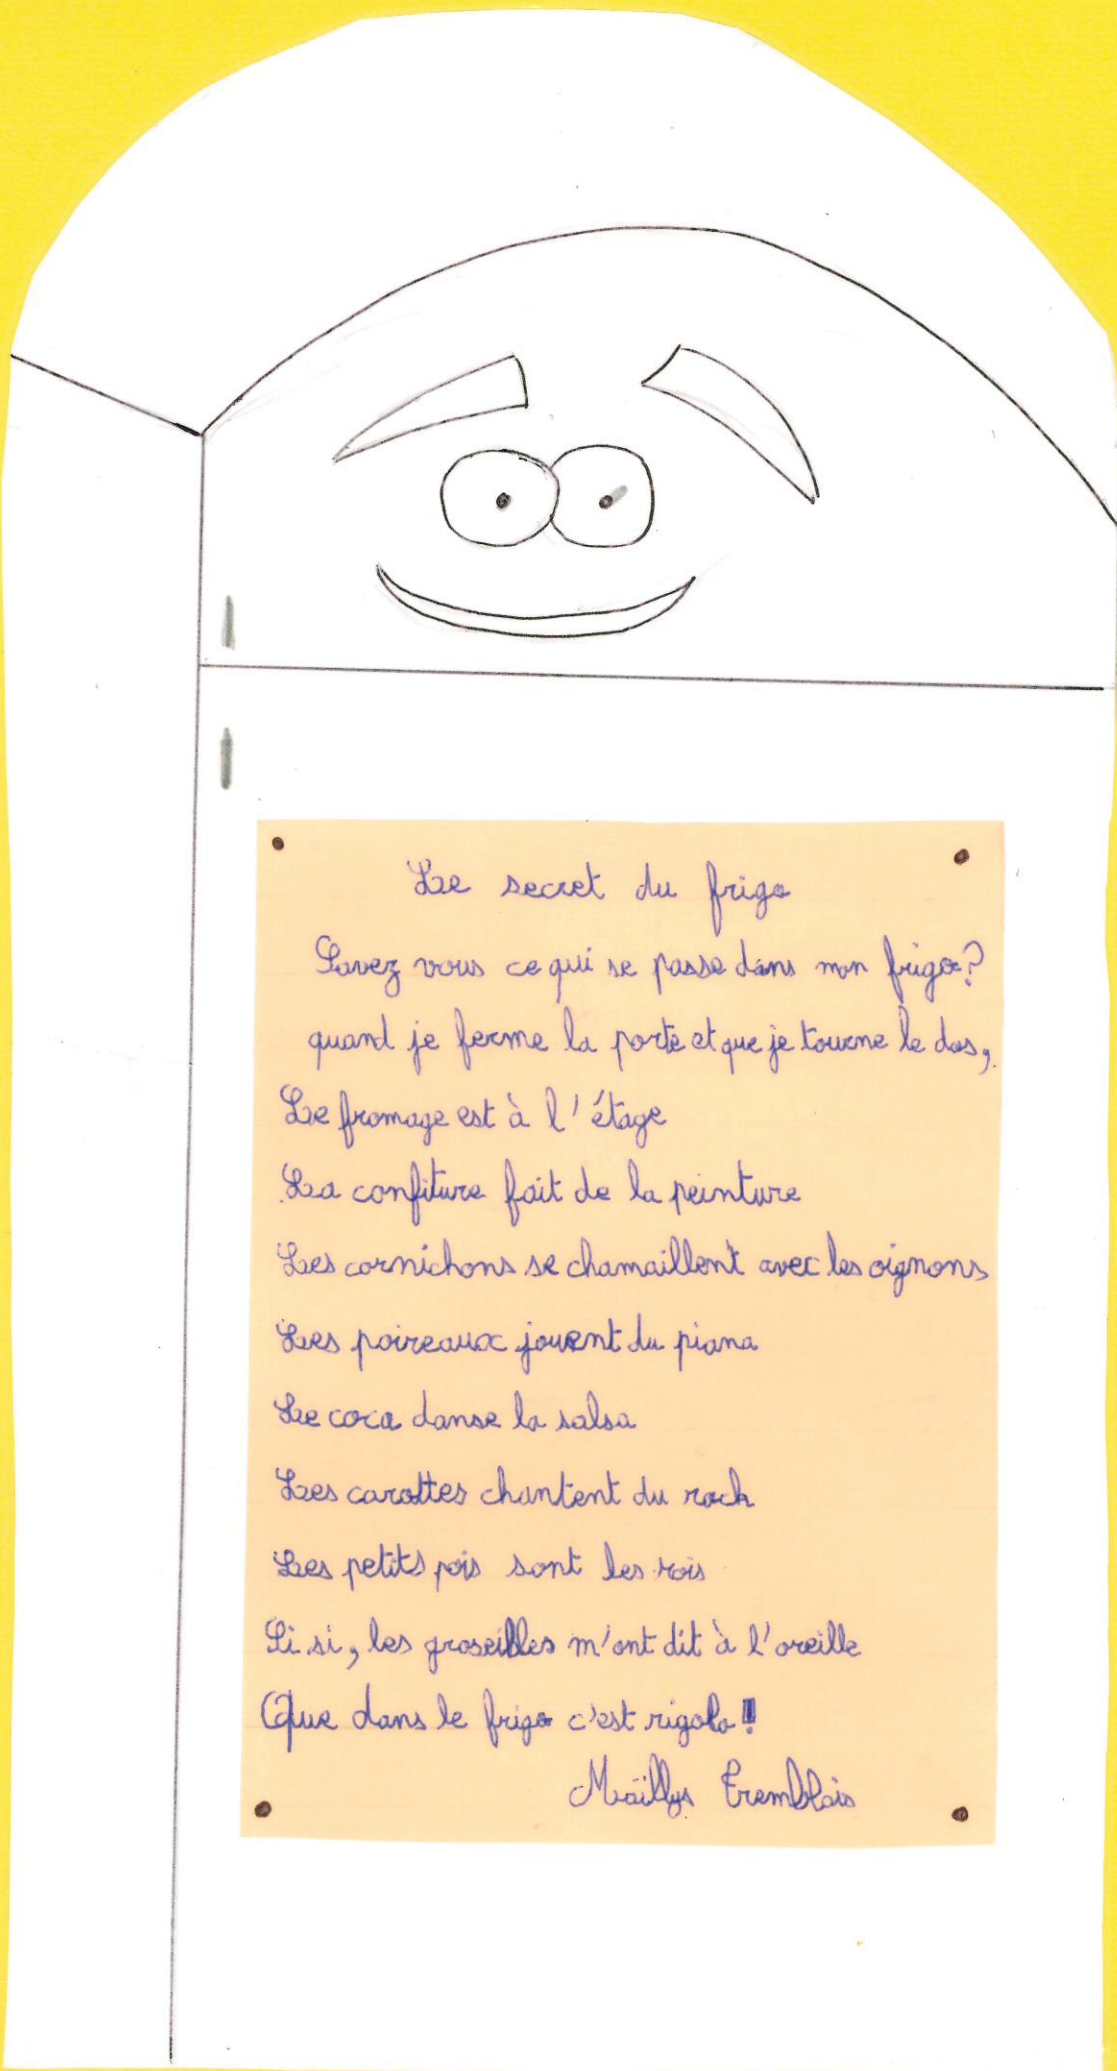 Le secret du frigo
Savez vous ce qui se passe dans mon frigo?
quand je ferme la porte et que je tourne le dos,
Le fromage est à l'étage
La confiture fait de la peinture
Les cornichons se chamaillent avec les oignons
Les poireaux jouent du piano
Le coca danse la salsa
Les carottes chantent du rock
Les petits pois sont les rois
Si si, les groseilles m'ont dit à l'oreille
Que dans le frigo c'est rigolo!
Maïllys Tremblais